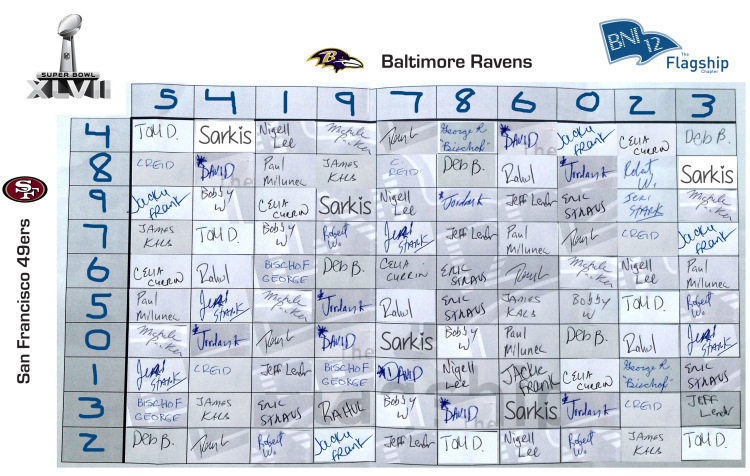 SUPER BOWL
XLVII
B
Baltimore Ravens
BNI 12
The
Flagship
Chapter
SF
San Francisco 49ers
5 4 1 9 7 8 6 0 2 3
4 TOM D. Sarkis Nigell Lee Tony L George R "Bischof" *DAVID Jacky Frank CELIA CURRIN Deb B.
8 CREID *DAVID Paul Milunec JAMES KHLS C. REID Deb B. Rahul *Jordan K Robert W. Sarkis
9 Jacky FRANK Bobby W CELIA CURRIN Sarkis Nigell Lee *Jordan K JEFF Lerdr ERIC STRAUS JERI STARK
7 JAMES KHLS TOM D. Bobby W Robert W. Jeri STARK JEFF Lerdr Paul Milunec Tony L CREID Jacky FRANK
6 CELIA CURRIN Rahul BISCHOF GEORGE Deb B. CELIA CURRIN ERIC STRAUS Tony L Nigell Lee Paul Milunec
5 Paul Milunec Jeri STARK *Jordan K Rahul ERIC STRAUS JAMES KHLS Bobby W TOM D. Robert W.
0 *Jordan K Tony L *DAVID Sarkis Bobby W Paul Milunec Deb B. Rahul Jeri STARK
1 Jeri STARK CREID JEFF Lerdr BISCHOF GEORGE *DAVID Nigell Lee JACKIE FRANK CELIA CURRIN George R "Bischof" ERIC STRAUS
3 BISCHOF GEORGE JAMES KHLS ERIC STRAUS RAHUL Bobby W *DAVID Sarkis *Jordan K CREID JEFF Lerdr
2 Deb B. Tony L Robert W. Jacky FRANK JEFF Lerdr TOM D. Nigell Lee Robert W. JAMES KHLS TOM D.